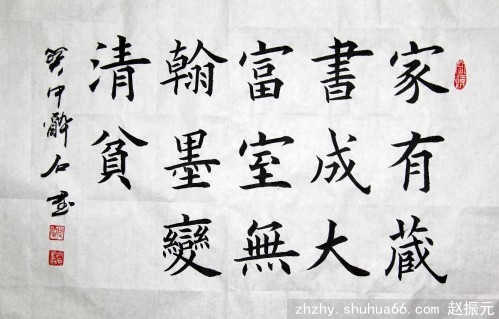 家有藏
書成大
富室無
翰墨變
清貧
醉石
zhzhy.shuhua66.com 赵振元